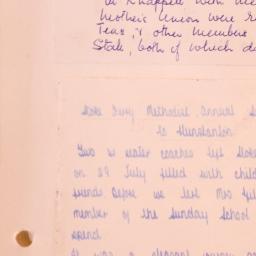 Mothers Union were
Teas, & other members
Stall, both of which
Stoke Ferry Methodist Annual
to Hunstanton
Two coaches left Stoke
on 29 July filled with child
friends. Before we left Mrs
member of the Sunday School
spend.
It was a pleasant journey